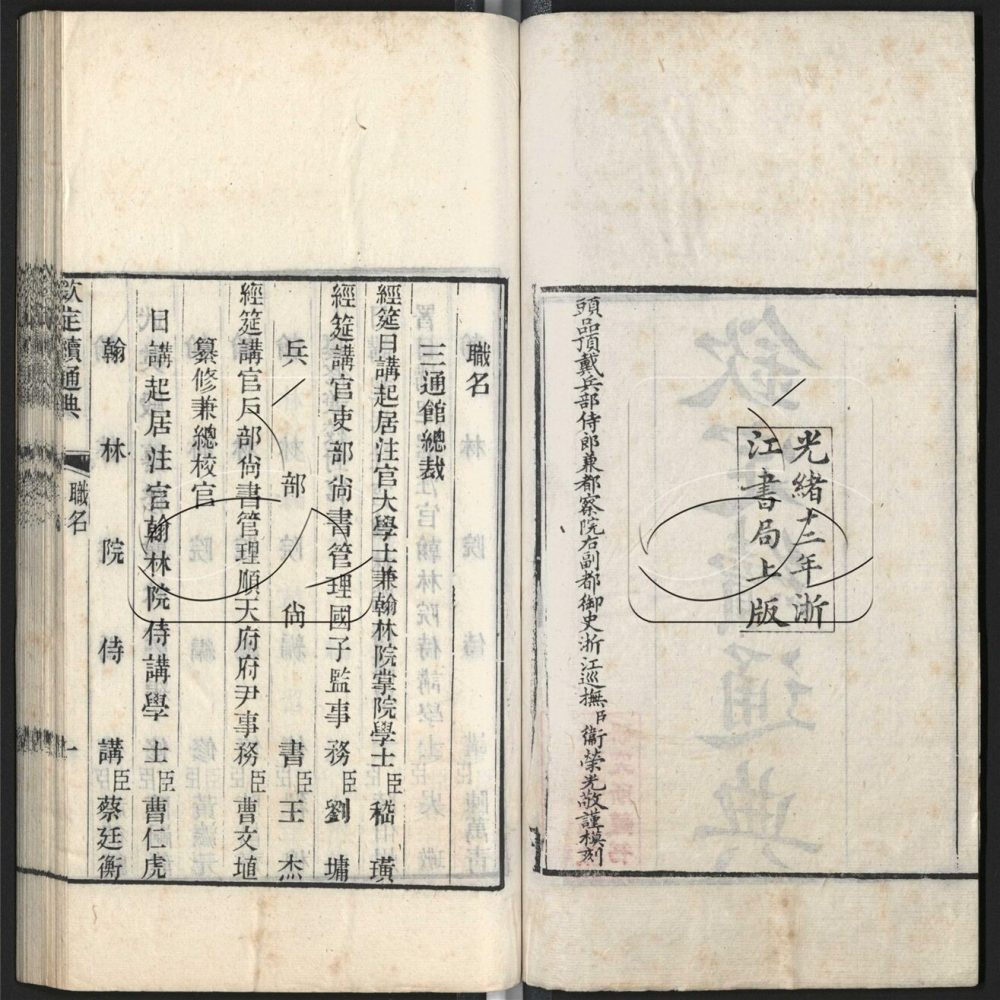 光緒十二年浙
江書局上版
頭品頂戴兵部侍郎兼都察院右副都御史浙江巡撫臣衞榮光敬謹模刻
職名
三通館總裁
經筵日講起居注官大學士兼翰林院掌院學士臣嵇璜
經筵講官吏部尙書管理國子監事務臣劉墉
兵部尙書臣王杰
經筵講官戶部尙書管理順天府府尹事務臣曹文埴
纂修兼總校官
日講起居注官翰林院侍講學士臣曹仁虎
翰林院侍講臣蔡廷衡
欽定續通典
職名
一